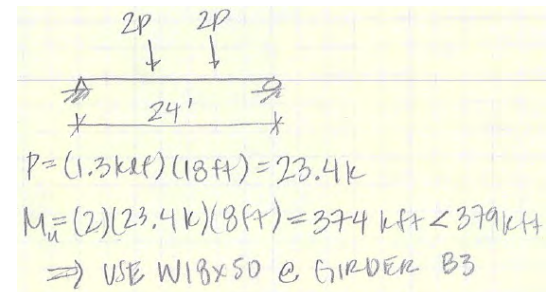 2P 2P
24'
P=(1.3klf)(18ft)=23.4k
Mu=(2)(23.4k)(8ft)=374 kft<379kft
⇒ USE W18x50 @ GIRDER B3